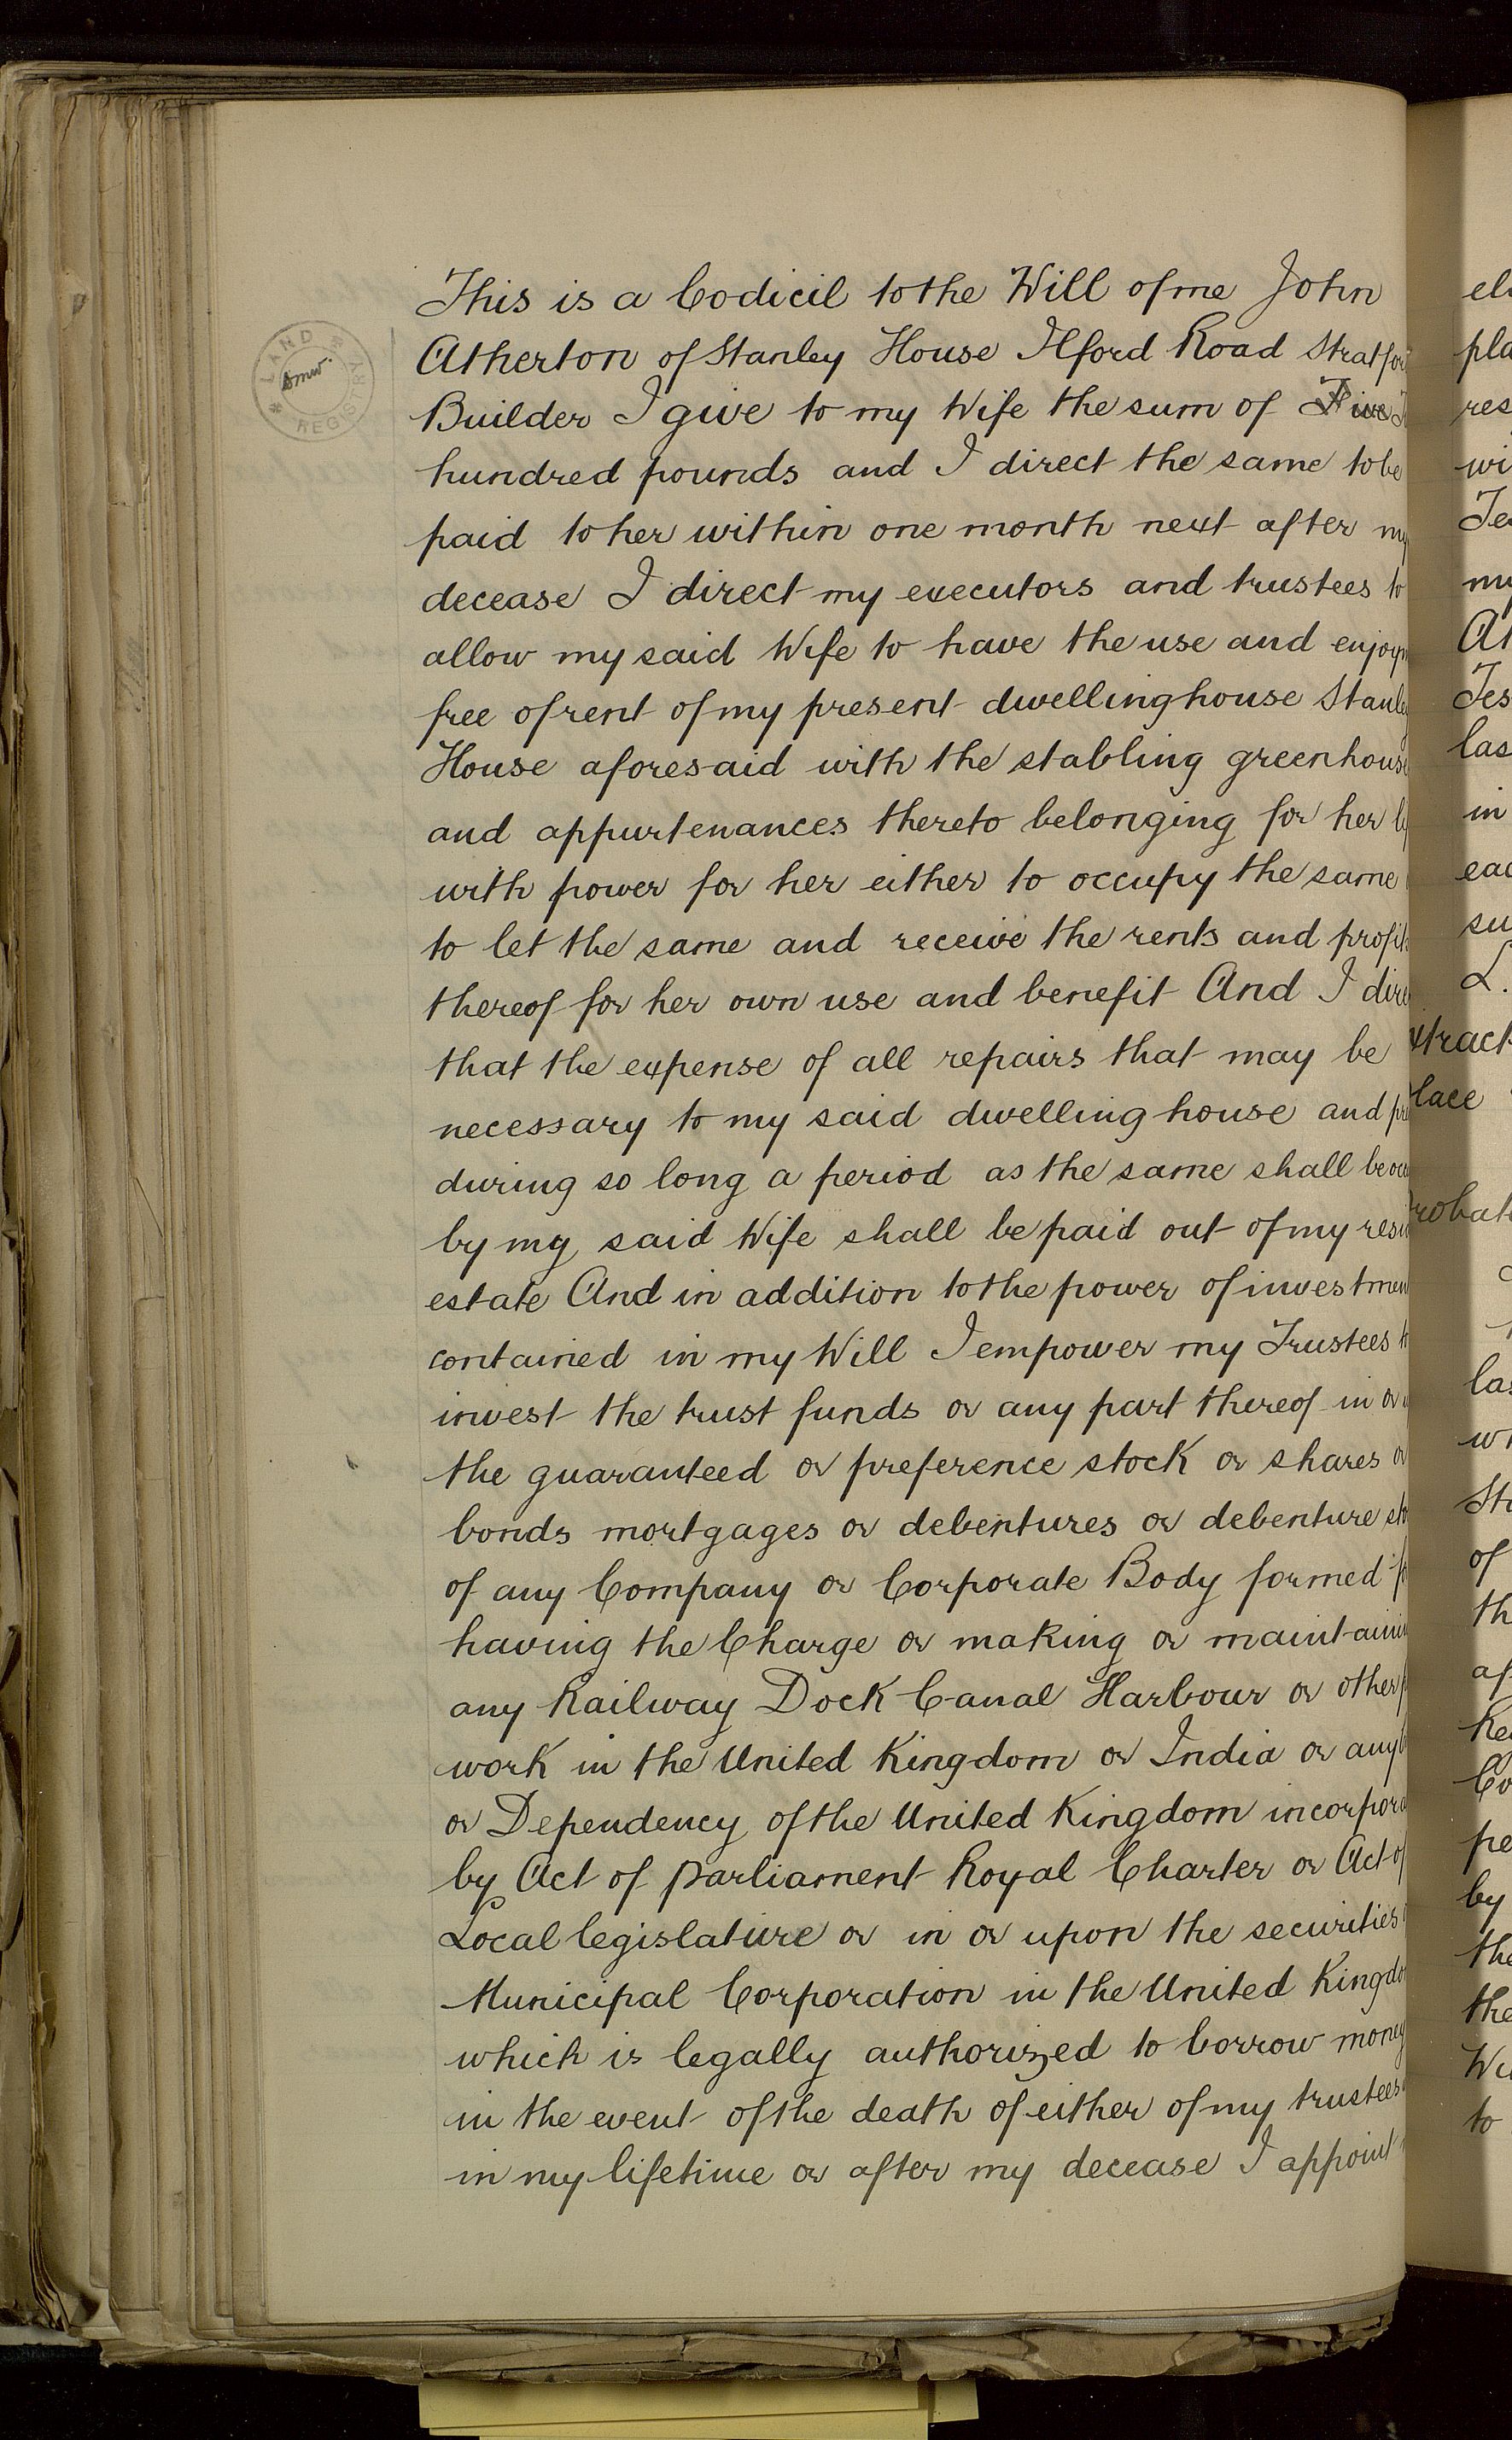 LAND REGISTRY
Smw.
This is a Codicil to the Will of me John
Atherton of Stanley House Ilford Road Stratfor
Builder I give to my Wife the sum of Five
hundred pounds and I direct the same to be
paid to her within one month next after my
decease I direct my executors and trustees to
allow my said Wife to have the use and enjoym
free of rent of my present dwellinghouse Stanle
House aforesaid with the stabling greenhouse
and appurtenances thereto belonging for her
with power for her either to occupy the same
to let the same and receive the rents and profits
thereof for her own use and benefit And I dire
that the expense of all repairs that may be
necessary to my said dwelling house and pre
during so long a period as the same shall be occu
by my said Wife shall be paid out of my resi
estate And in addition to the power of investmen
contained in my Will I empower my Trustees to
invest the trust funds or any part thereof in or
the guaranteed or preference stock or shares or
bonds mortgages or debentures or debenture sto
of any Company or Corporate Body formed fo
having the Charge or making or maintainin
any Railway Dock Canal Harbour or other p
work in the United Kingdom or India or any
or Dependency of the United Kingdom incorpora
by Act of Parliament Royal Charter or Act of
Local legislature or in or upon the securities
Municipal Corporation in the United Kingdo
which is legally authorized to borrow money
in the event of the death of either of my trustees
in my lifetime or after my decease I appoint
ele
pla
res
wi
Te
my
At
Tes
las
in
eac
su
L.
xtract
lace
robate
las
wh
Sta
of
th
af
Re
Co
pe
by
the
the
Wi
to